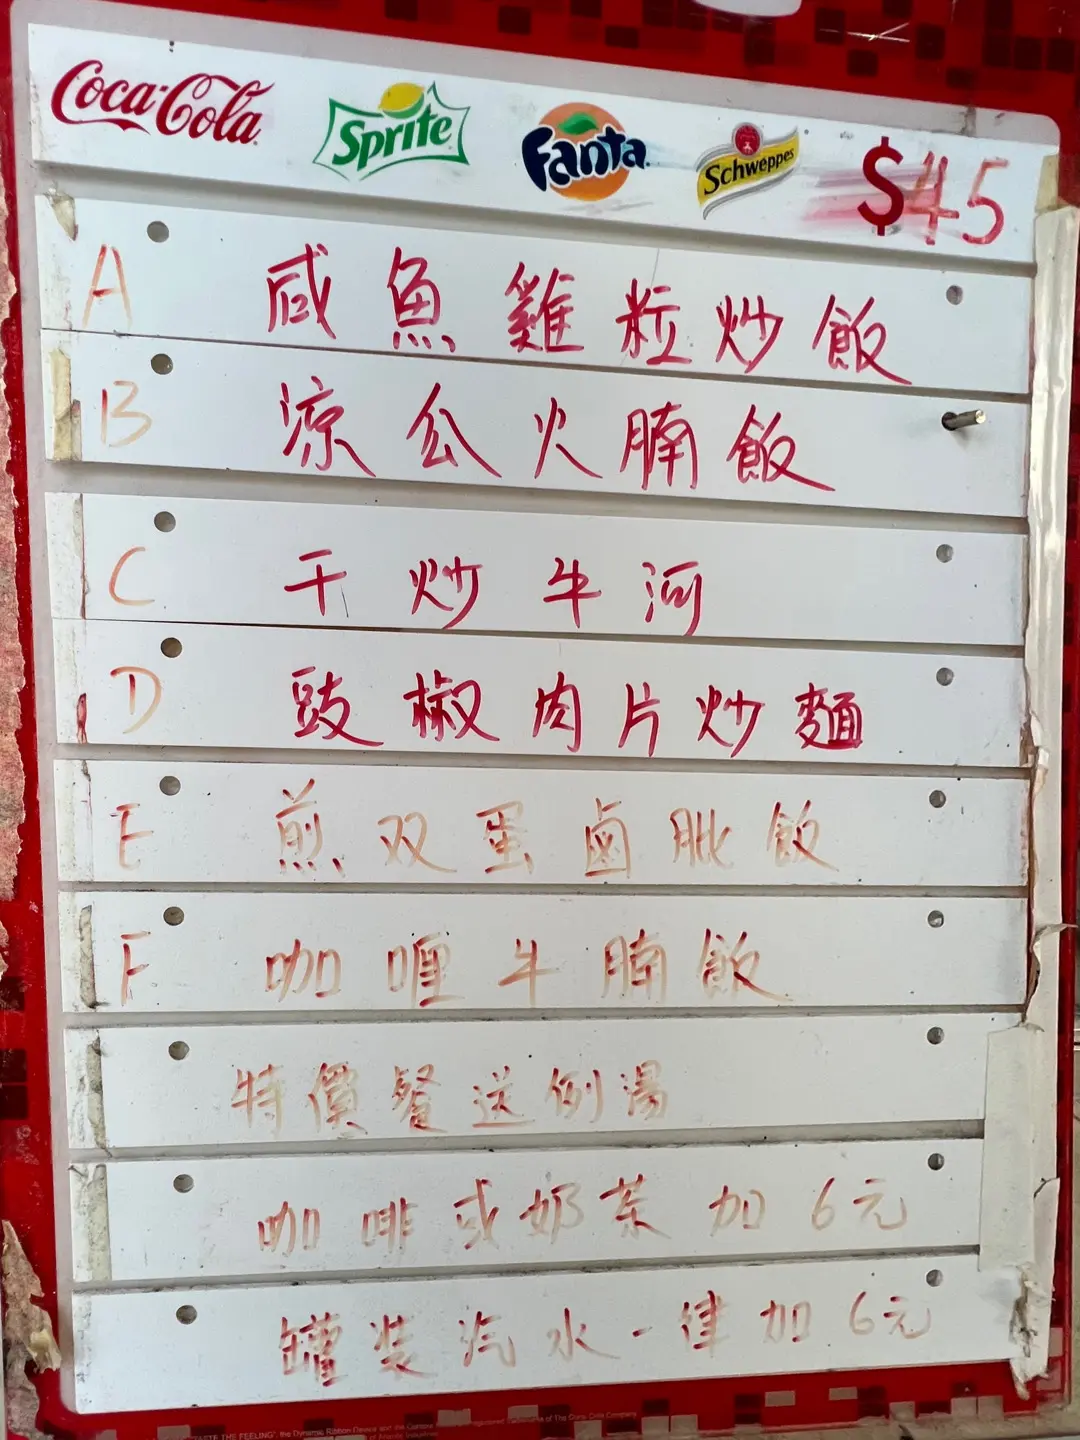 Coca-Cola Sprite Fanta Schweppes $45
A 咸魚雞粒炒飯
B 涼瓜火腩飯
C 干炒牛河
D 豉椒肉片炒麵
E 煎双蛋鹵肶飯
F 咖喱牛腩飯
特價餐送例湯
咖啡或奶茶加6元
罐装汽水一律加6元